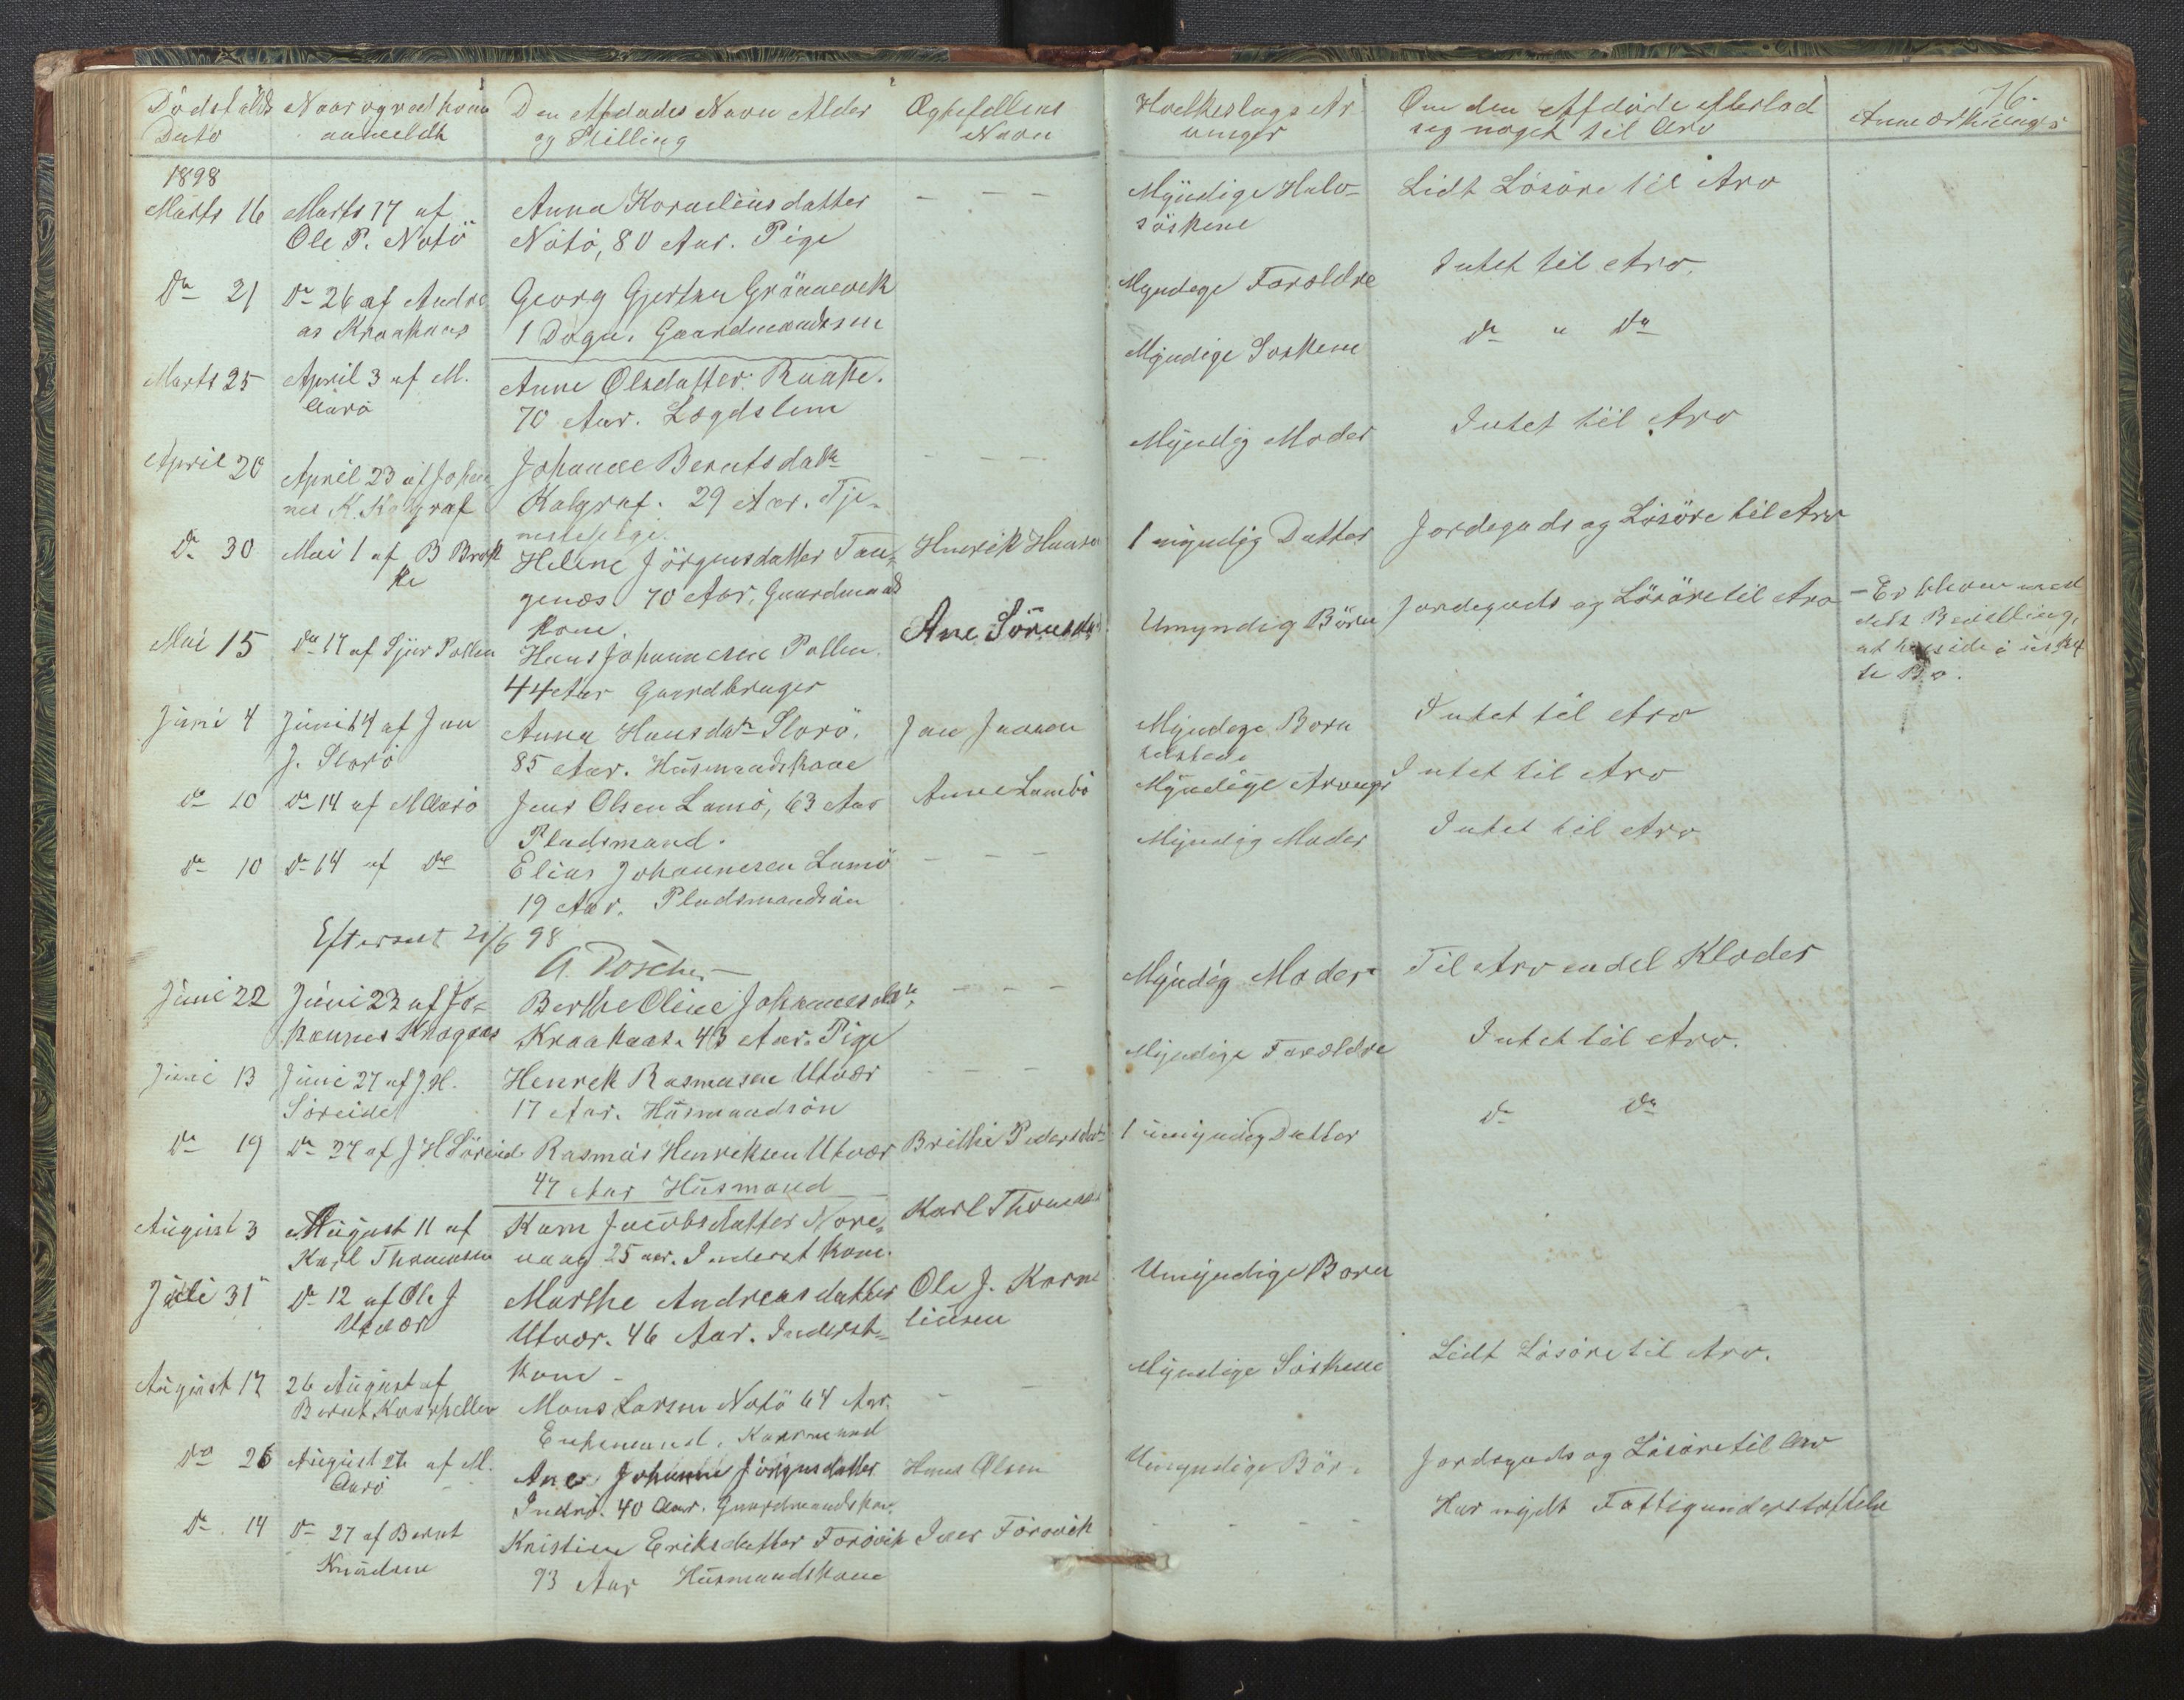 76.
Dødsfalds Dato
Naar og ved hvem anmeldt
Den Afdødes Navn Alder og Stilling
Ægtefellens Navn
Hvilkeslags Arvinger
Om den Afdøde efterlod sig noget til Arv
Anmærkninger
1898
Marts 16 Marts 17 af Anna Korneliusdatter — — — Myndige Halv- Lidt Løsøre til Arv
Ole P. Notø Notö, 80 Aar. Pige søskene
Do 21 Do 26 af Andre Georg Gjertsen Grönnevik Myndige Foreldre Intet til Arv.
as Kraakaas 1 Dogn. Gaardmandssøn
Marts 25 April 3 af M. Anne Olsdatter Myndige Soskene Do " Do
Aarø 70 Aar. Lægdslem
April 20 April 23 af Johan- Johanne Berntsdatr — — — Myndig Moder Intet til Arv
nes K. Kalgraf Kalgraf. 29 Aar. Tje-
nestepige.
Do 30 Mai 1 af B Brek Helene Jörgensdatter Tan- Henrik Hansen 1 myndig Datter Jordegods og Løsöre til Arv
ke genæs 70 Aar. Gaardmands
Kone
Mai 15 Do 17 af Sjur Pollen Hans Johannesen Pollen. Ane Sörensdtr. Umyndig Börn Jordegods og Lösöre til Arv — Er bleven med
44 Aar Gaardbruger delt Bevilling,
at henside i uskif
te Bo.
Juni 4 Juni 14 af Jan Anna Hansdatr Storö. Jan Jansen Myndege Born Intet til Arv
J. Storö 85 Aar. Husmandskone
Do 10 Do 14 af M Aarö Jens Olsen Lamö, 63 Aar Anne Lambö Myndige Arvinger Intet til Arv
Pladsmand.
Do 10 Do 14 af Do Elias Johannesen Lamö — — — Myndig Moder Intet til Arv
19 Aar. Pladsmandsön
Efterseet 21/6 98
Juni 22 Juni 23 af Jo- Berthe Oline Johannesdatr. — — — Myndig Moder Til Arv endel Klæder
hannes Kraakaas. 43 Aar. Pige
Juni 13 Juni 27 af J. H. Henrek Rasmusen Utvær — — — Myndige Foreldre Intet til Arv.
Söreide 17 Aar. Husmandsön
Do 19 Do 27 af J H Söreide Rasmus Henriksen Utvær Brithe Pedersdatr 1 umyndig Datter Do Do
47 Aar Husmand
August 3 August 11 af Jacobsdatter Nore- Karl Thomas
Karl Thomassen vaag 25 aar. Inderst Kone.
Juli 31 Do 12 af Ole J Marthe Andreasdatter Ole J. Korne Umyndige Born
Utvær Utvær. 46 Aar. Inderst- liusen
Kone
August 17 26 August af Mons Larsen Notö 64 Aar. — — Myndige Söskene Lidt Lösöre til Arv.
Bernt Enkemand,
Do 26 August 26 af M. Ane Johanne Jörgensdatter Hans Olsen Umyndige Börn Jordegods og Lösöre til Arv
Aarö Indrö. 40 Aar. Gaardmandskone
Do 14 Do 27 af Bernt Kristine Eriksdatter Forövik Iver Förövik — — — — Har nydt Fattigunderstøttelse
Knudsen 93 Aar Husmandskone